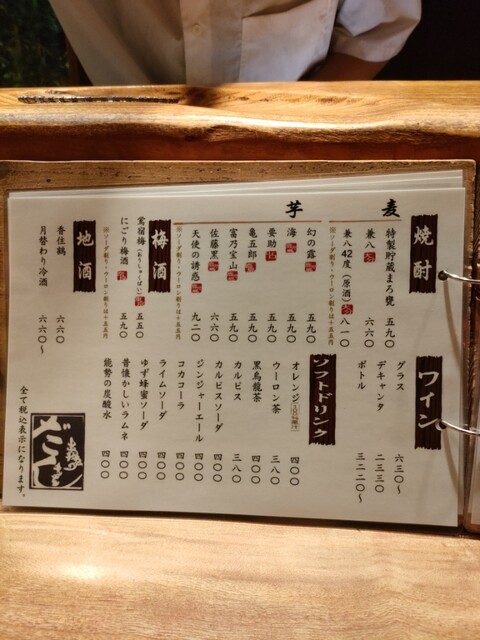 焼酎
麦
特製貯蔵まろ甕 五九〇
兼八 六六〇
兼八42度(原酒) 八一〇
※ソーダ割り・ウーロン割りは+五五円
芋
幻の露 五九〇
海 五九〇
要助 五九〇
亀五郎 五九〇
富乃宝山 五九〇
佐藤黒 六六〇
天使の誘惑 九二〇
※ソーダ割り・ウーロン割りは+五五円
梅酒
鶯宿梅(おうしゅくばい) 五五〇
にごり梅酒 五九〇
※ソーダ割り・ウーロン割りは+五五円
地酒
香住鶴 六六〇
月替わり冷酒 六六〇〜
ワイン
グラス 六三〇〜
デキャンタ 二三三〇
ボトル 三二二〇〜
ソフトドリンク
オレンジ 四〇〇
ウーロン茶 三八〇
黒烏龍茶 四〇〇
カルピス 三八〇
カルピスソーダ 四〇〇
ジンジャーエール 四〇〇
コカコーラ 四〇〇
ライムソーダ 四〇〇
ゆず蜂蜜ソーダ 四〇〇
昔懐かしいラムネ 四〇〇
能勢の炭酸水 四〇〇
全て税込表示になります。